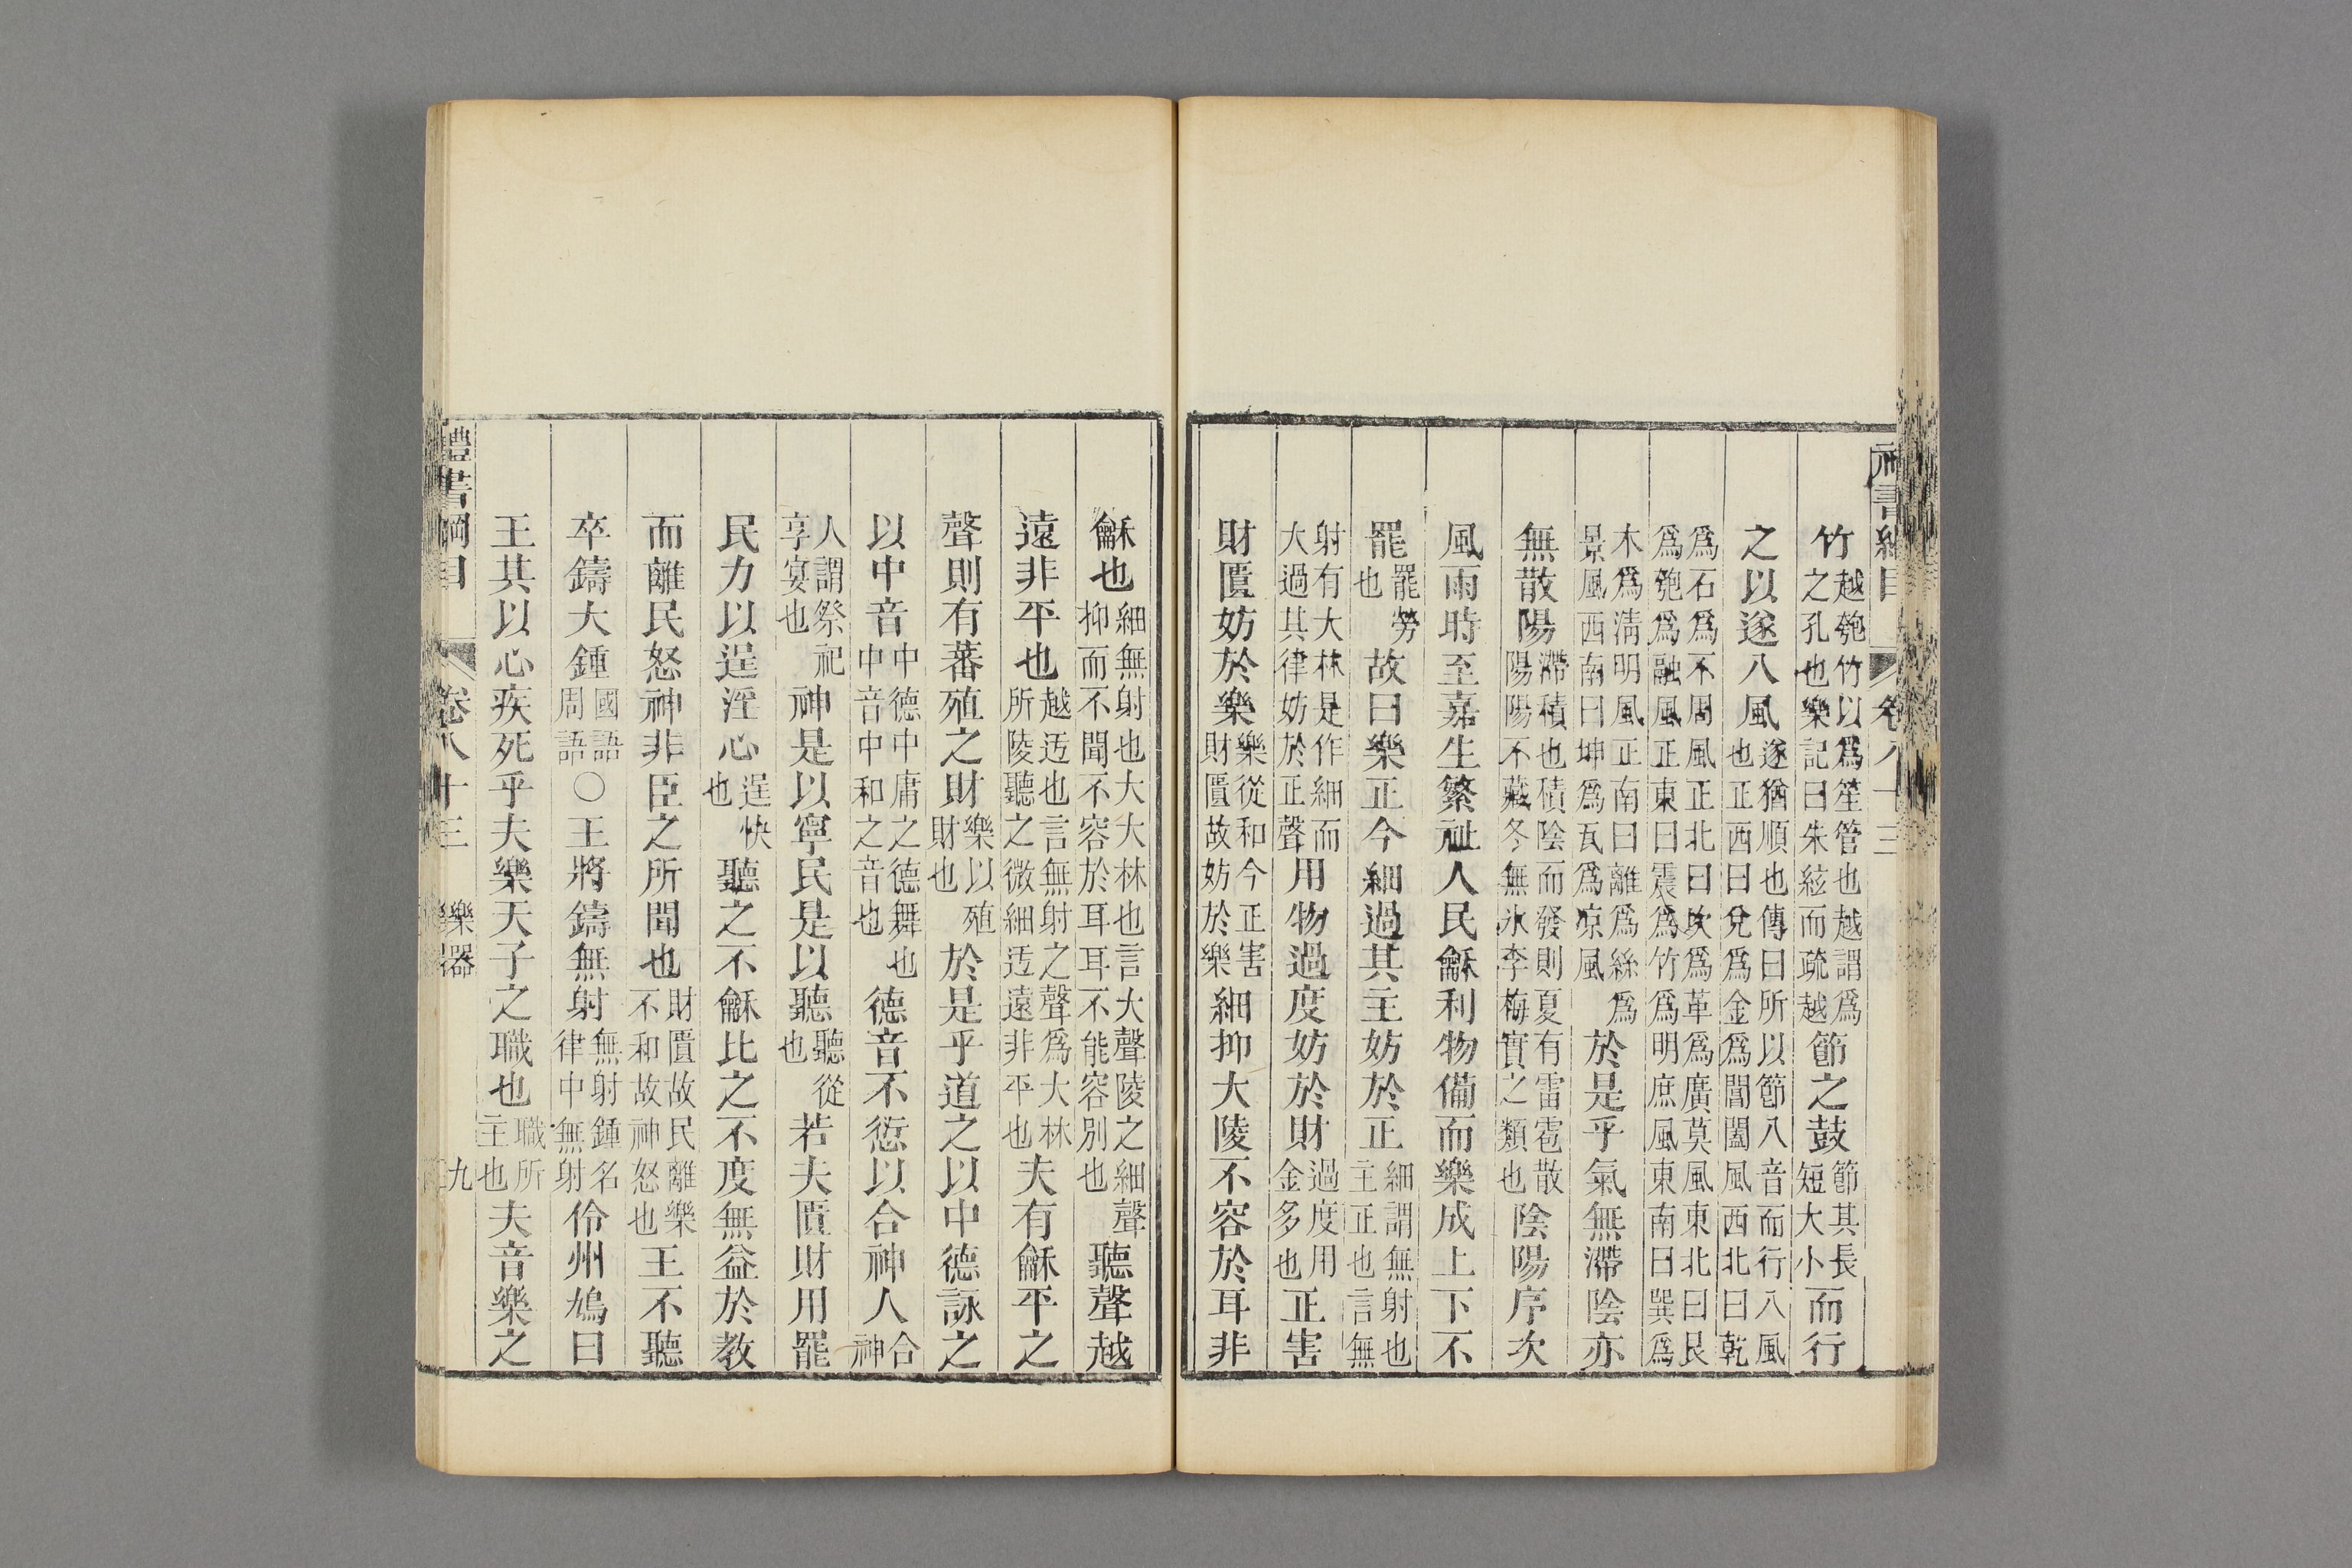 竹越匏竹以爲笙管也越謂爲之孔也樂記曰朱絃而疏越節之鼓節其長短大小而行
之以遂八風遂猶順也傳曰所以節八音而行八風也正西曰兌爲金爲閶闔風西北曰乾
爲石爲不周風正北曰坎爲革爲廣莫風東北曰艮爲匏爲融風正東曰震爲竹爲明庶風東南曰巽爲
木爲淸明風正南曰離爲絲爲景風西南曰坤爲瓦爲凉風於是乎氣無滯陰亦
無散陽滯積也積陰而發則夏有雷雹散陽陽不藏冬無氷李梅實之類也陰陽序次
風雨時至嘉生繁祉人民龢利物備而樂成上下不
罷罷勞也故曰樂正今細過其主妨於正細謂無射也主正也言無
射有大林是作細而大過其律妨於正聲用物過度妨於財過度用金多也正害
財匱妨於樂樂從和今正害財匱故妨於樂細抑大陵不容於耳非
龢也細無射也大大林也言大聲陵之細聲抑而不聞不容於耳耳不能容別也聽聲越
遠非平也越迃也言無射之聲爲大林所陵聽之微細迃遠非平也夫有龢平之
聲則有蕃殖之財樂以殖財也於是乎道之以中德詠之
以中音中德中庸之德舞也中音中和之音也德音不愆以合神人合神
人謂祭祀享宴也神是以寧民是以聽聽從也若夫匱財用罷
民力以逞淫心逞快也聽之不龢比之不度無益於教
而離民怒神非臣之所聞也財匱故民離樂不和故神怒也王不聽
卒鑄大鍾國語周語○王將鑄無射無射鍾名律中無射伶州鳩曰
王其以心疾死乎夫樂天子之職也職所主也夫音樂之
禮書綱目 卷八十三 樂器 九